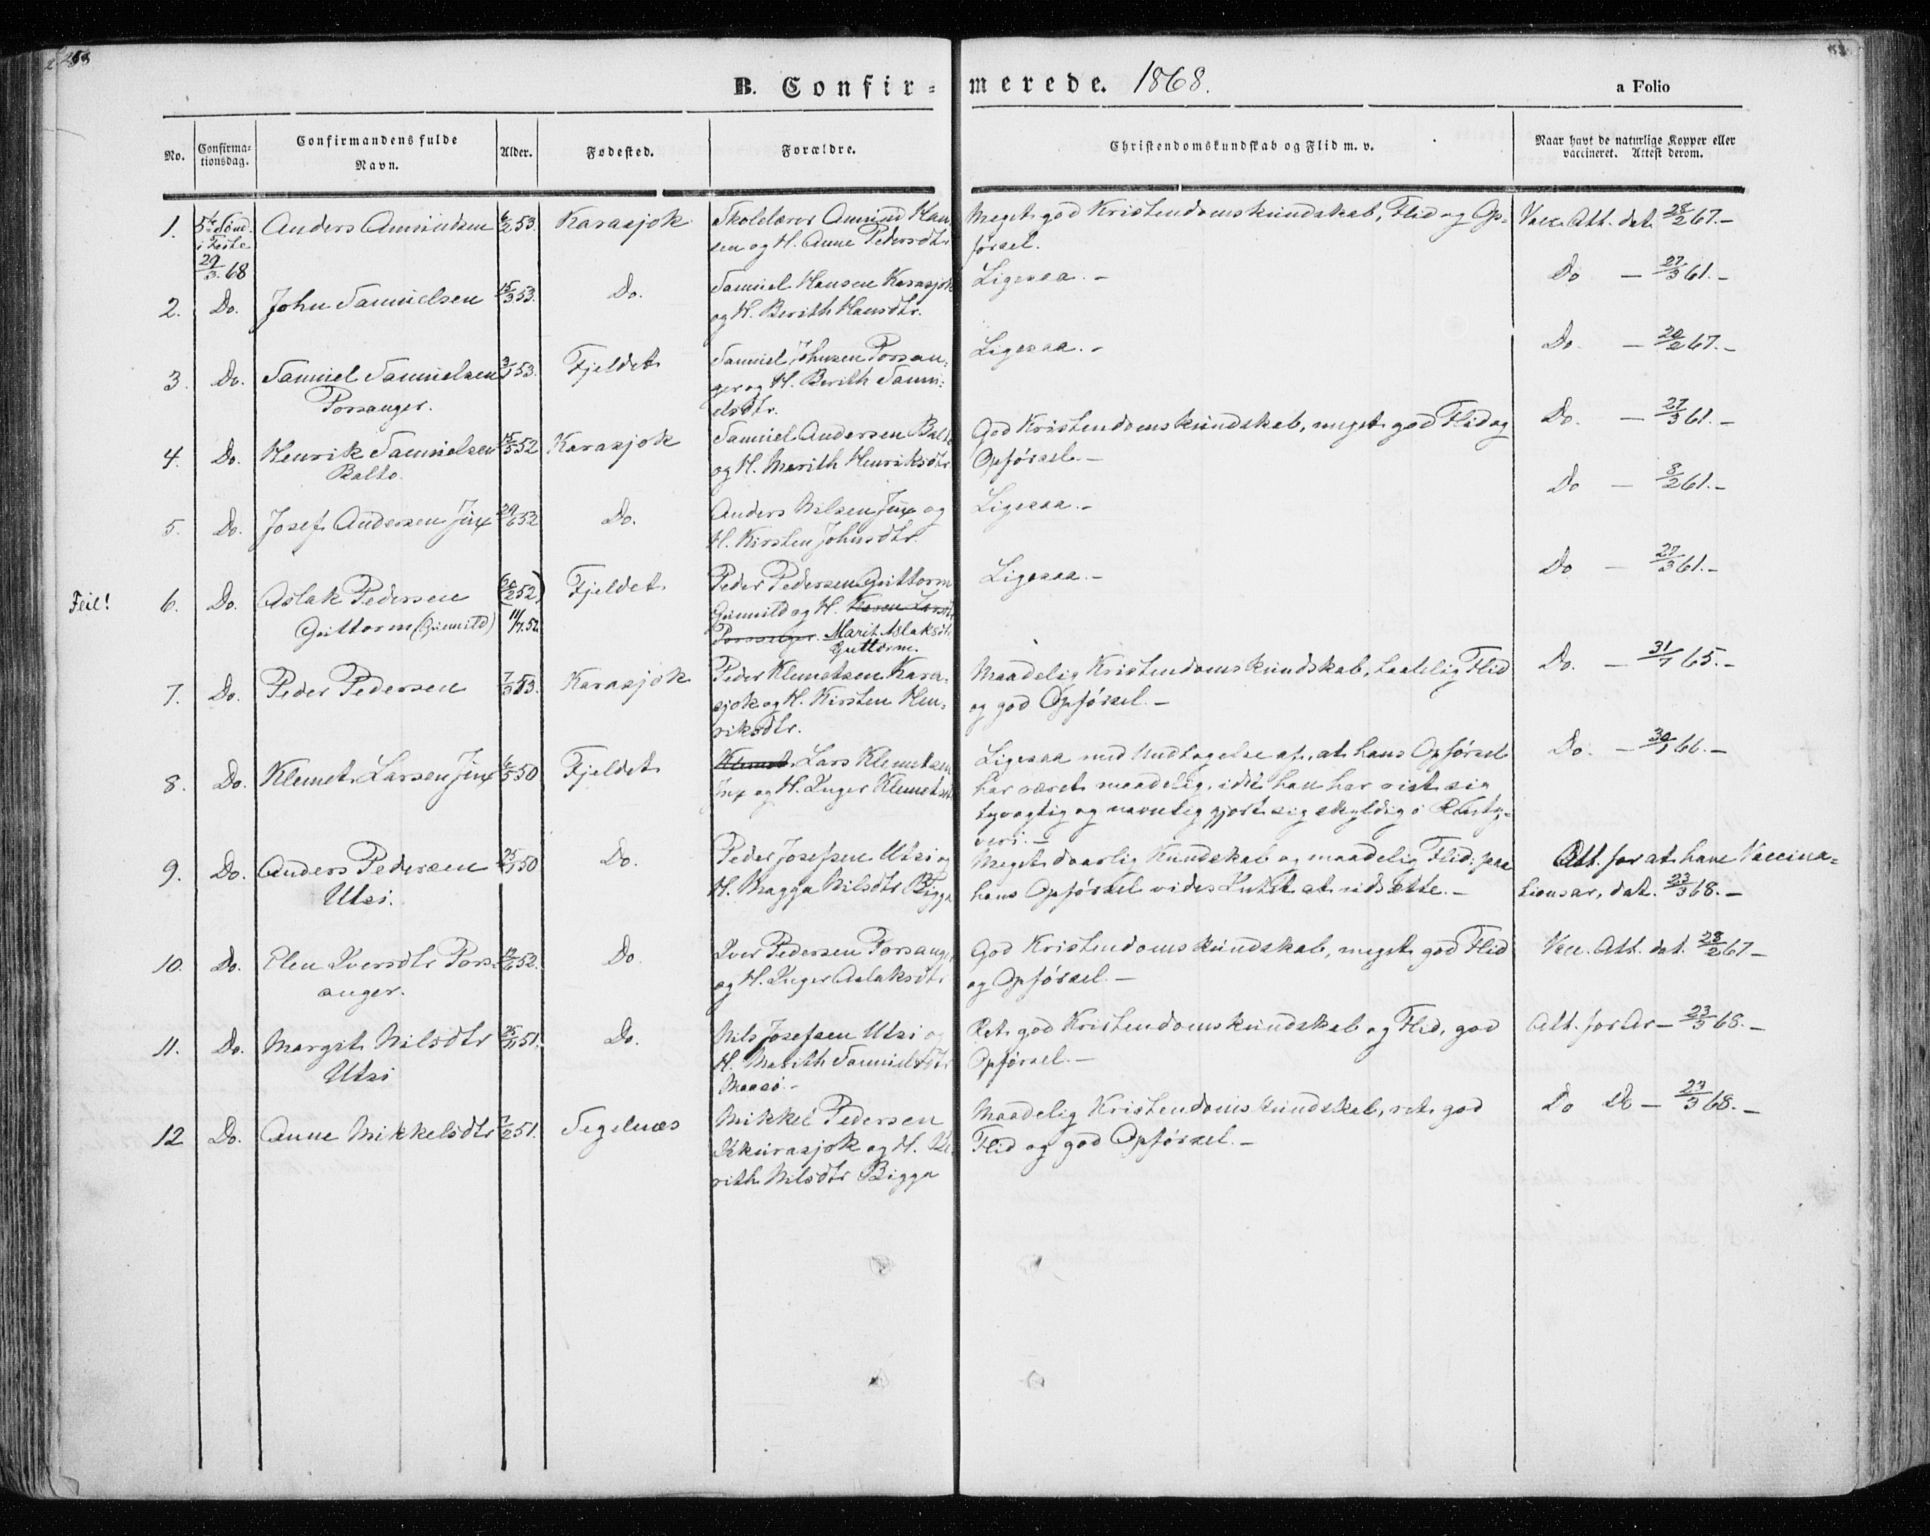 B. Confir- merede. 1868.
a Folio
No.
Confirma-
tionsdag.
Confirmandens fulde
Navn.
Alder.
Fødested.
Forældre.
Christendomskundskab og Flid m. v.
Naar havt de naturlige Kopper eller
vaccineret. Attest derom.
1. 5te Sønd. Anders Amundsen 6/2 53. Karasjok Skolelærer Amund Han- Meget god Kristendomskundskab, Flid og Op- Vacc. Att. dat. 28/2 67.-
i Faste sen og H. Anne Pedersdtr førsel.
29/3 68
2. Do. John Samuelsen 15/3 53. Do. Samuel Hansen Karasjok Ligesaa.- Do - 27/3 61.-
og H. Berith Hansdtr.
3. Do. Samuel Samuelsen 3/1 53. Fjeldet Samuel Johnsen Porsan- Ligesaa.- Do. - 20/2 67.-
Porsanger. ger og H. Berith Samu-
elsdtr.
4. Do. Henrik Samuelsen 15/5 52 Karasjok Samuel Andersen Balto God Kristendomskundskab, meget god Flid og Do. - 27/3 61.-
Balto. og H. Marith Henriksdtr Opførsel.-
5. Do. Josef Andersen Jux 29/6 52 Do. Anders Nilsen Jux og Ligesaa.- Do - 8/2 61.-
H. Kirsten Johnsdtr.
Feil! 6. Do. Aslak Pedersen (20/2 52) Fjeldet Peder Pedersen Guttorm Ligesaa.- Do - 27/3 61.-
Guttorm (Gunnild) 11/7. 52. Gunnild og H. Karen Larsdtr
Porsanger. Marit Aslaksdtr
Guttorm.
7. Do. Peder Pedersen 7/3 53. Karasjok Peder Klemetsen Kara- Maadelig Kristendomskundskab, taalelig Flid Do. - 31/7 65.-
sjok og H. Kirsten Hen- og god Opførsel.-
riksdtr.
8. Do. Klemet Larsen Jux 6/5 50 Fjeldet Klemet Lars Klemetsen Ligesaa med Undtagelse af, at hans Opførsel Do. - 30/1 66.-
Jux og H. Inger Klemetsdtr har været maadelig, idet han har vist sig
tyvagtig og navnlig gjort sig skyldig i Rensty-
veri.-
9. Do. Anders Pedersen 25/3 50 Do. Peder Josefsen Utsi og Meget daarlig Kundskab og maadelig Flid; paa Att. for at have Vaccina-
Utsi. H. Magga Nilsdtr Bigga hans Opførsel vides Intet at udsætte.- tionsar, dat. 23/3 68.-
10. Do. Elen Iversdtr Pors- 12/6 52. Do. Iver Pedersen Porsanger God Kristendomskundskab, meget god Flid Vacc. Att. dat. 28/2 67-
anger. og H. Inger Aslaksdtr og Opførsel.-
11. Do. Margit Nilsdtr 25/11 51. Do. Nils Josefsen Utsi og Ret god Kristendomskundskab og Flid, god Att. for Ar - 23/3 68.-
Utsi H. Marith Samuelsdtr Opførsel.-
Maasø.-
12 Do. Anne Mikkelsdtr 7/2 51. Segelnæs Mikkel Pedersen Maadelig Kristendomskundskab, ret god Do Do - 23/3 68.-
og H. Be- Flid og god Opførsel.-
rith Nilsdtr Bigga